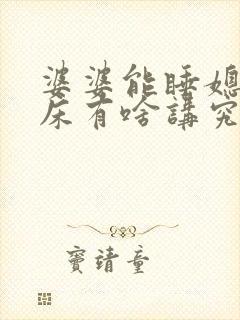 婆婆能睡媳
床有啥講究
竇靖童